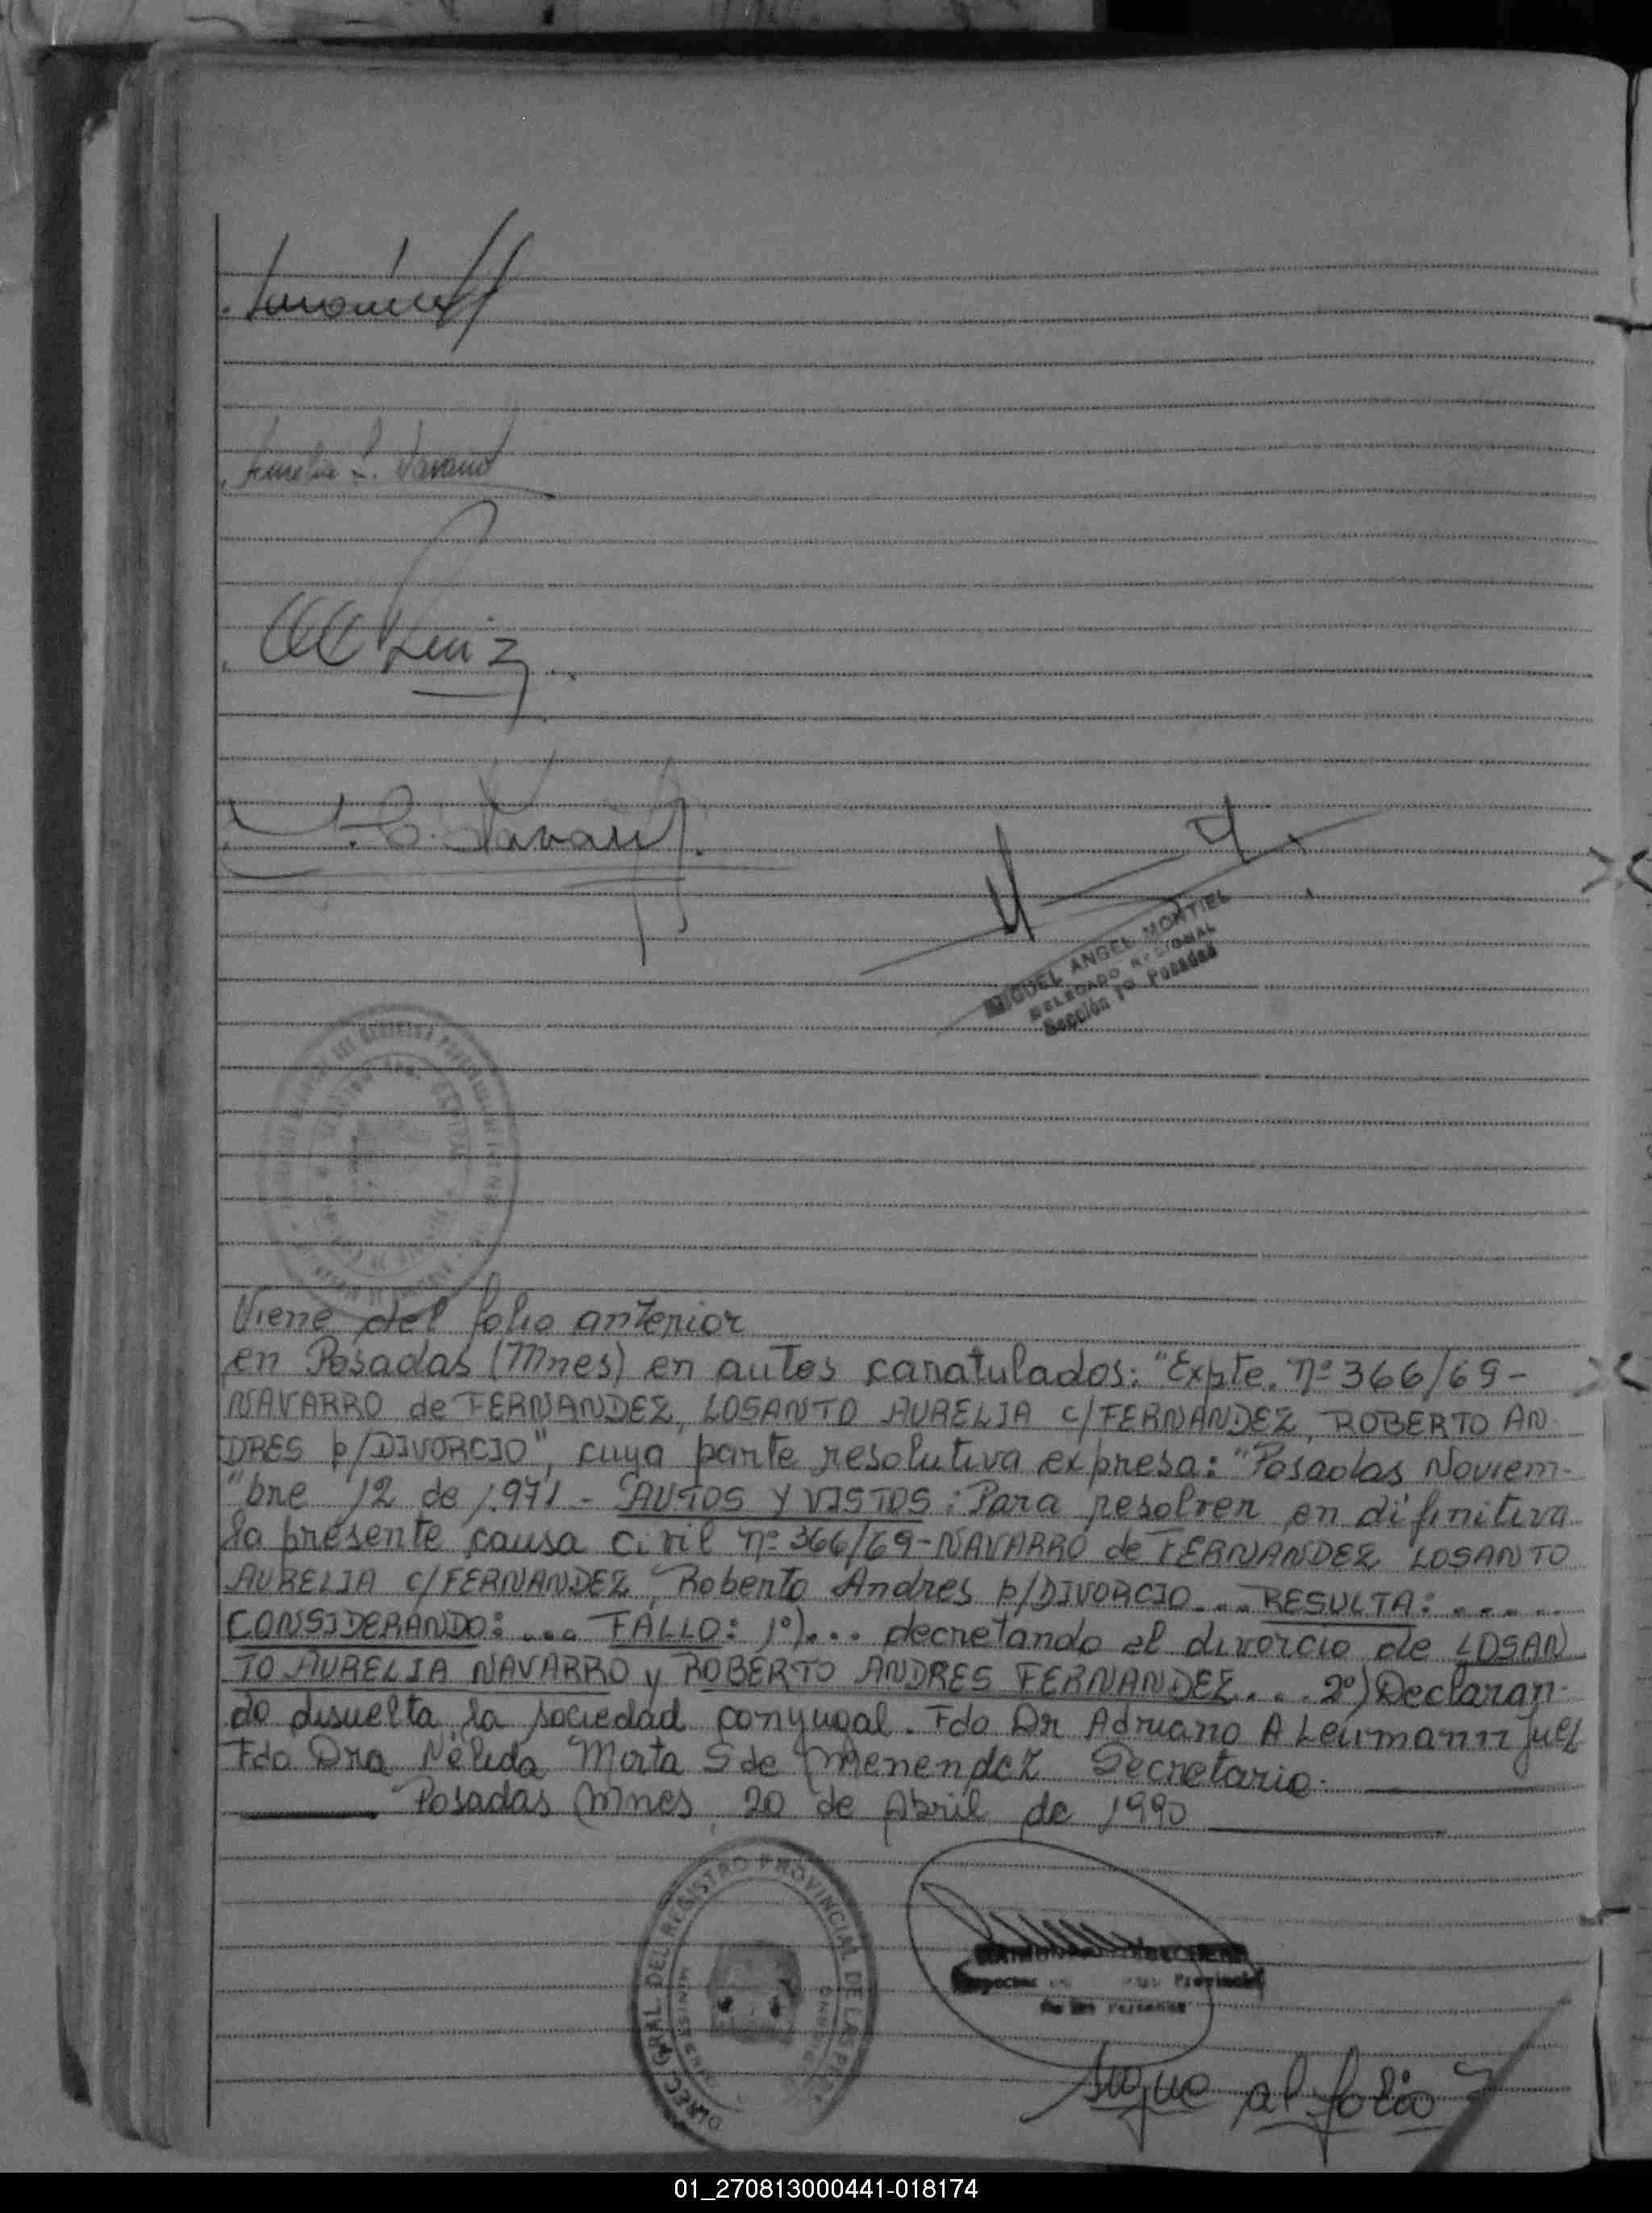 Aurelia L. Navarro
Ruiz
Navarro
MIGUEL ANGEL MONTIEL
DELEGADO REGIONAL
Sección 1º Posadas
Viene del folio anterior
en Posadas (Mnes) en autos caratulados: "Expte. nº 366/69-
NAVARRO de FERNANDEZ, LOSANTO AURELIA c/FERNANDEZ, ROBERTO AN-
DRES p/DIVORCIO", cuya parte resolutiva expresa: "Posadas Noviem-
"bre 12 de 1.971 - AUTOS Y VISTOS: Para resolver en difinitiva
la presente causa civil nº 366/69-NAVARRO de FERNANDEZ LOSANTO
AURELIA c/FERNANDEZ, Roberto Andres p/DIVORCIO... RESULTA: .....
CONSIDERANDO: ... FALLO: 1º)... decretando el divorcio de LOSAN
TO AURELIA NAVARRO y ROBERTO ANDRES FERNANDEZ... 2º) Declaran-
do disuelta la sociedad conyugal. Fdo Dr Adriano A Leumann Juez
Fdo Dra Nélida Mirta S de Menendez Secretario.
Posadas Mnes, 20 de Abril de 1990
DIRECC GRAL DEL REGISTRO PROVINCIAL DE LAS PERS
Provincial
de las Personas
Sigue al folio
01_270813000441-018174